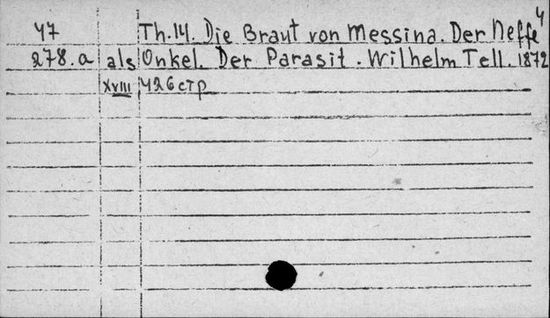 4
47 Th. 14. Die Braut von Messina. Der Neffe
278.a als Onkel. Der Parasit. Wilhelm Tell. 1872
XVIII 426 стр